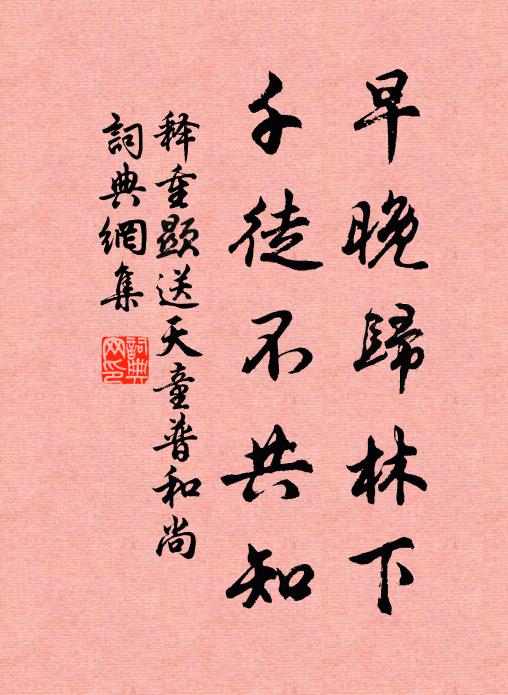 早晚歸林下
千徒不共知
释重顯送天童普和尚
詞典網集
詞典网印